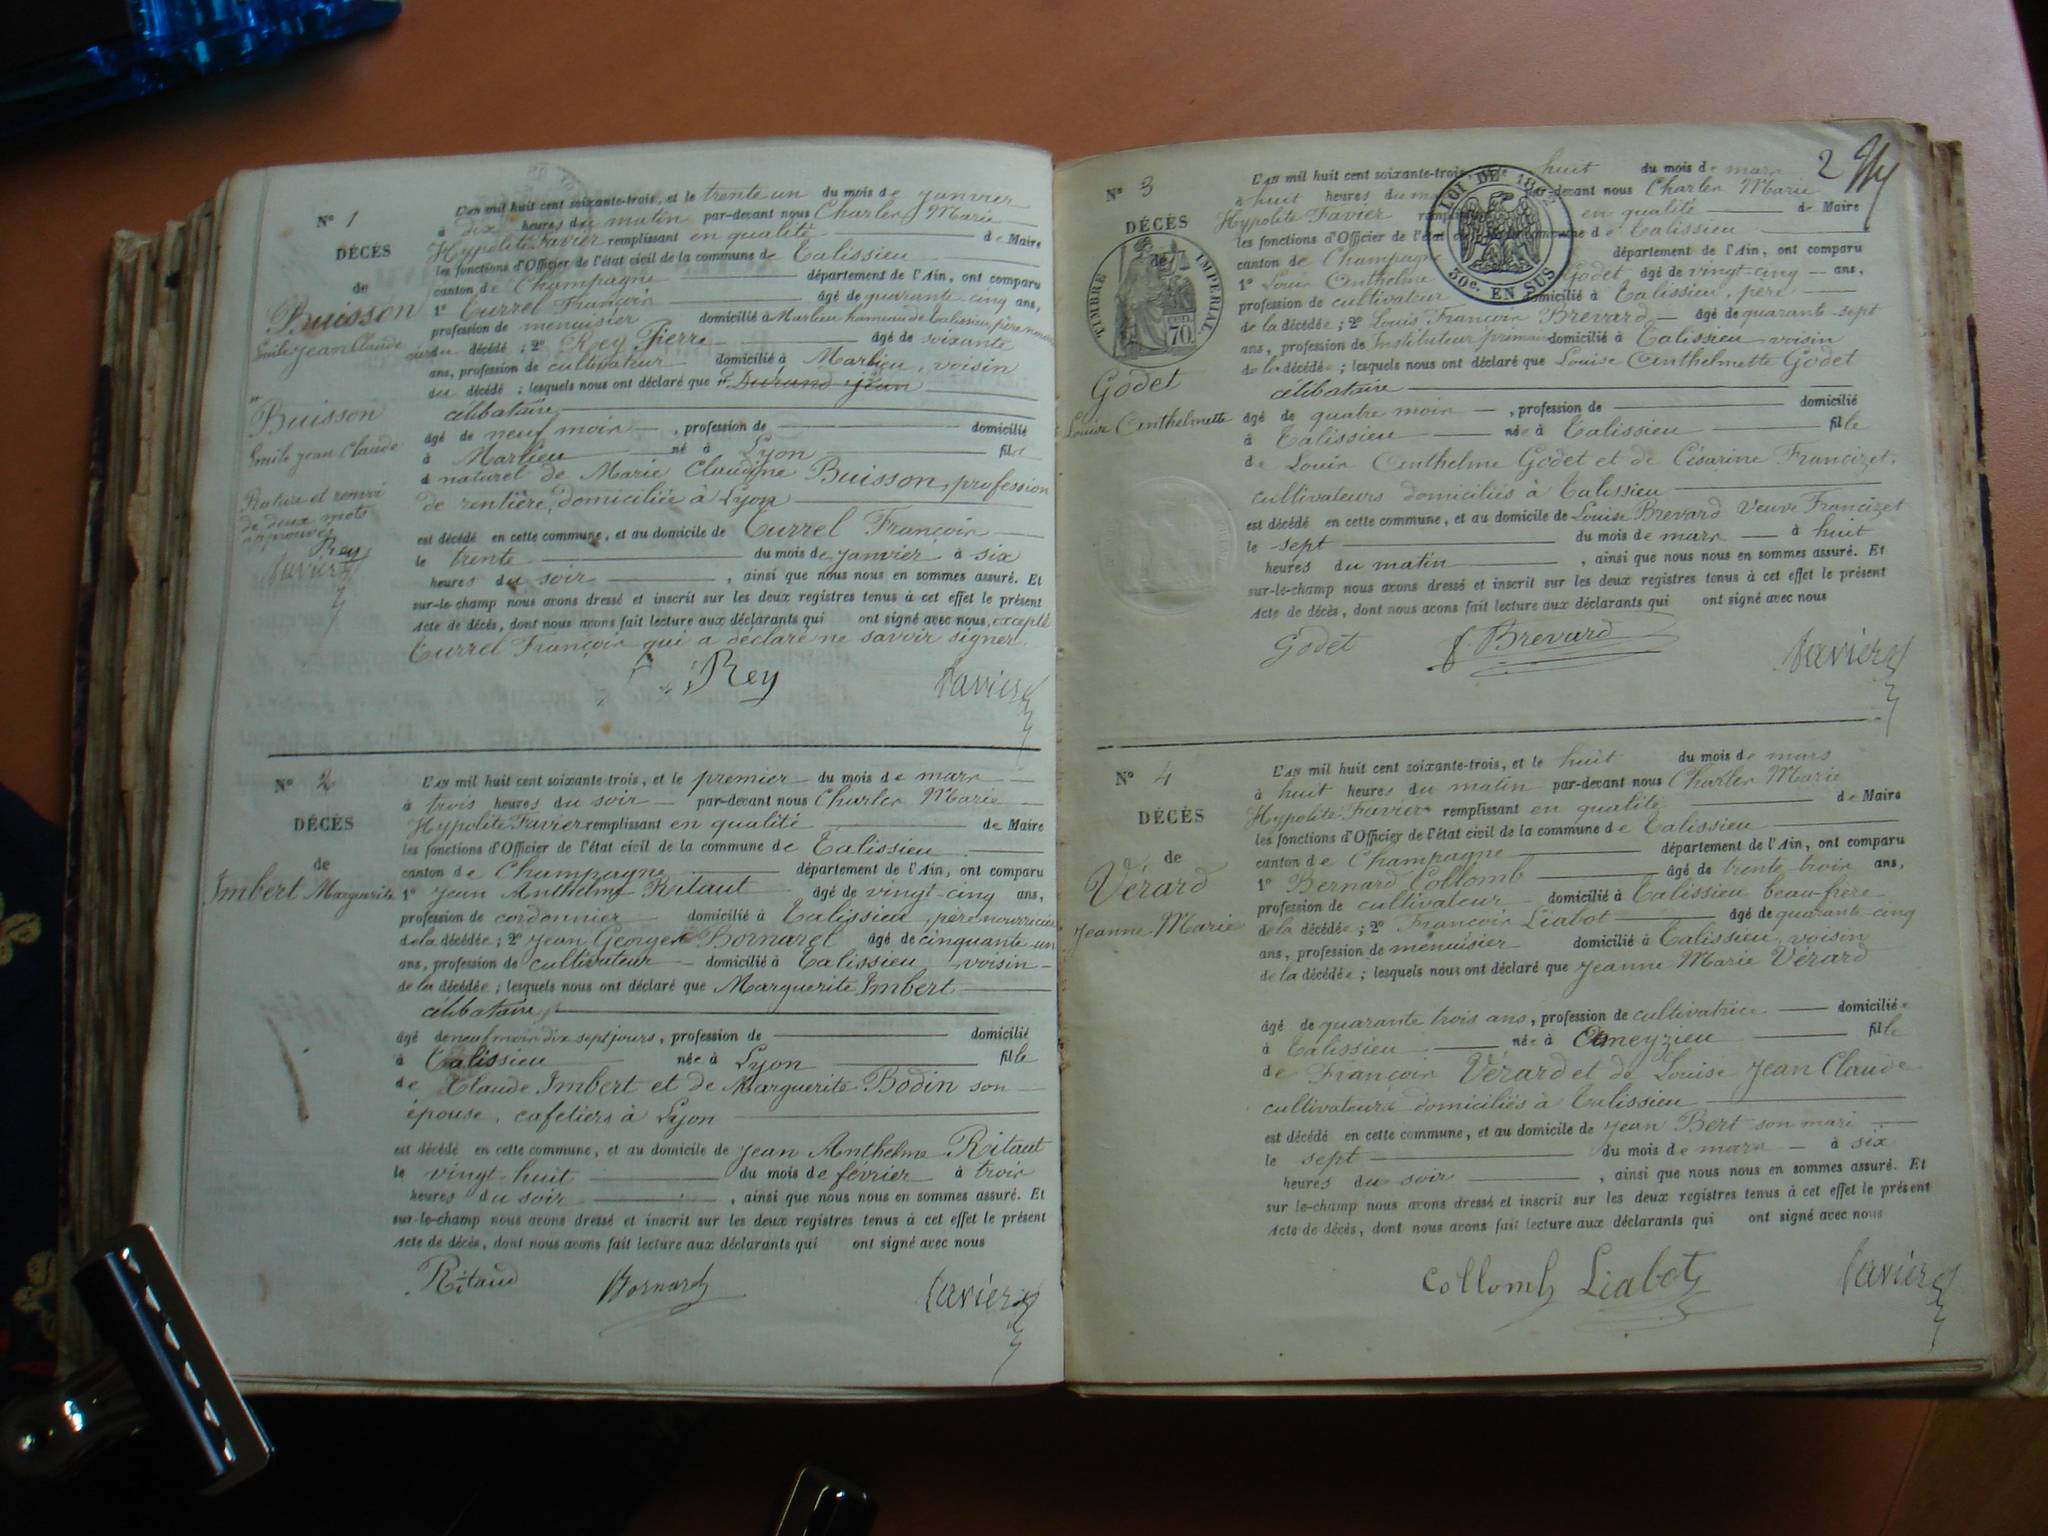 N° 1
DÉCÈS
de
Buisson
Emile Jean Claude
Buisson
Emile Jean Claude
Rature et renvoi
de deux mots
approuvés
Rey
Favier
L'AN mil huit cent soixante-trois, et le trente un du mois de janvier
à dix heures du matin par-devant nous Charles Marie
Hypolite Favier remplissant en qualité de Maire
les fonctions d'Officier de l'état civil de la commune de Talissieu
canton de Champagne département de l'Ain, ont comparu
1° Curral François âgé de quarante cinq ans,
profession de menuisier domicilié à Marlieu hameau de Talissieu, père nourricier
du décédé ; 2° Rey Pierre âgé de soixante
ans, profession de cultivateur domicilié à Marlieu, voisin
du décédé ; lesquels nous ont déclaré que Durand Jean
célibataire
âgé de neuf mois, profession de domicilié
à Marlieu né à Lyon fils
naturel de Marie Claudine Buisson, profession
de rentière, domiciliée à Lyon
est décédé en cette commune, et au domicile de Currel François
le trente du mois de janvier à six
heures du soir, ainsi que nous nous en sommes assuré. Et
sur-le-champ nous avons dressé et inscrit sur les deux registres tenus à cet effet le présent
Acte de décès, dont nous avons fait lecture aux déclarants qui ont signé avec nous, excepté
Currel François qui a déclaré ne savoir signer.
Rey Favier
N° 2
DÉCÈS
de
Imbert Marguerite
L'AN mil huit cent soixante-trois, et le premier du mois de mars
à trois heures du soir par-devant nous Charles Marie
Hypolite Favier remplissant en qualité de Maire
les fonctions d'Officier de l'état civil de la commune de Talissieu
canton de Champagne département de l'Ain, ont comparu
1° Jean Anthelme Ritaut âgé de vingt-cinq ans,
profession de cordonnier domicilié à Talissieu, père nourricier
de la décédée ; 2° Jean Georges Bornarel âgé de cinquante-un
ans, profession de cultivateur domicilié à Talissieu, voisin
de la décédée ; lesquels nous ont déclaré que Marguerite Imbert
célibataire,
âgé de neuf mois dix sept jours, profession de domicilié
à Talissieu née à Lyon fille
de Claude Imbert et de Marguerite Bodin son
épouse, cafetiers à Lyon
est décédé en cette commune, et au domicile de Jean Anthelme Ritaut
le vingt-huit du mois de février à trois
heures du soir, ainsi que nous nous en sommes assuré. Et
sur-le-champ nous avons dressé et inscrit sur les deux registres tenus à cet effet le présent
Acte de décès, dont nous avons fait lecture aux déclarants qui ont signé avec nous
Ritaud Bornarel Favier
2
N° 3
DÉCÈS
de
TIMBRE IMPÉRIAL
70
LOI DE 1862
50c. EN SUS
Godet
Louise Anthelmette
L'AN mil huit cent soixante-trois, huit du mois de mars
à huit heures du par-devant nous Charles Marie
Hypolite Favier remplissant en qualité de Maire
les fonctions d'Officier de l'état civil de la commune de Talissieu
canton de Champagne département de l'Ain, ont comparu
1° Louis Anthelme Godet âgé de vingt-cinq ans,
profession de cultivateur domicilié à Talissieu, père
de la décédée ; 2° Louis François Brevard âgé de quarante-sept
ans, profession de Instituteur primaire domicilié à Talissieu voisin
de la décédée ; lesquels nous ont déclaré que Louise Anthelmette Godet
célibataire
âgé de quatre mois, profession de domicilié
à Talissieu née à Talissieu fille
de Louis Anthelme Godet et de Césarine Francizet,
cultivateurs domiciliés à Talissieu
est décédé en cette commune, et au domicile de Louise Brevard Veuve Francizet
le sept du mois de mars à huit
heures du matin, ainsi que nous nous en sommes assuré. Et
sur-le-champ nous avons dressé et inscrit sur les deux registres tenus à cet effet le présent
Acte de décès, dont nous avons fait lecture aux déclarants qui ont signé avec nous
Godet Brevard Favier
N° 4
DÉCÈS
de
Vérard
Jeanne-Marie
L'AN mil huit cent soixante-trois, et le huit du mois de mars
à huit heures du matin par-devant nous Charles Marie
Hypolite Favier remplissant en qualité de Maire
les fonctions d'Officier de l'état civil de la commune de Talissieu
canton de Champagne département de l'Ain, ont comparu
1° Bernard Collomb âgé de trente trois ans,
profession de cultivateur domicilié à Talissieu beau-frère
de la décédée ; 2° François Liabot âgé de quarante-cinq
ans, profession de menuisier domicilié à Talissieu, voisin
de la décédée ; lesquels nous ont déclaré que Jeanne Marie Vérard
âgé de quarante trois ans, profession de cultivatrice domiciliée
à Talissieu née à Ameyzieu fille
de François Vérard et de Louise Jean Claude
cultivateurs domiciliés à Talissieu
est décédé en cette commune, et au domicile de Jean Bert son mari
le sept du mois de mars à six
heures du soir, ainsi que nous nous en sommes assuré. Et
sur le-champ nous avons dressé et inscrit sur les deux registres tenus à cet effet le présent
Acte de décès, dont nous avons fait lecture aux déclarants qui ont signé avec nous
Collomb Liabot Favier